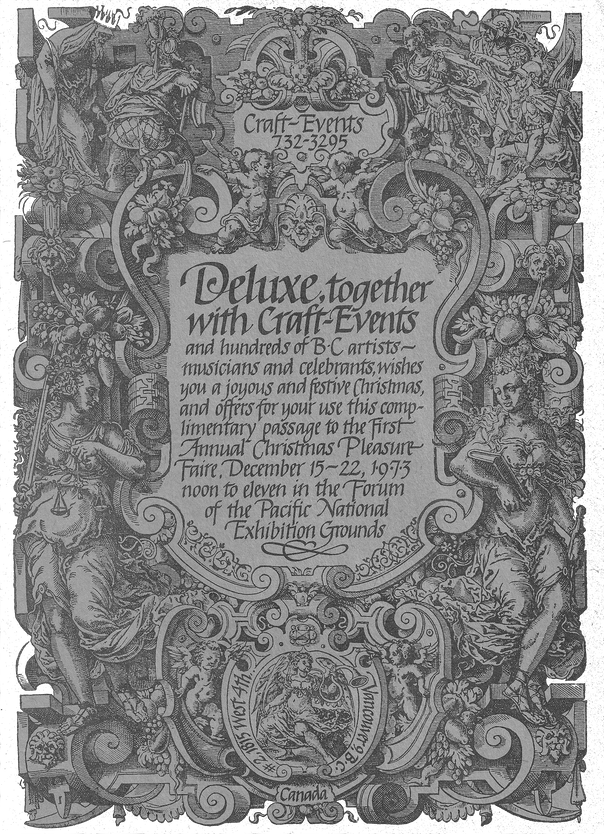 Craft-Events
732-3295
Deluxe, together
with Craft-Events
and hundreds of B·C artists~
musicians and celebrants, wishes
you a joyous and festive Christmas,
and offers for your use this comp-
limentary passage to the first
Annual Christmas Pleasure
Faire, December 15~22, 1973
noon to eleven in the Forum
of the Pacific National
Exhibition Grounds
#2, 1815 West 4th
Vancouver 9, B·C·
Canada